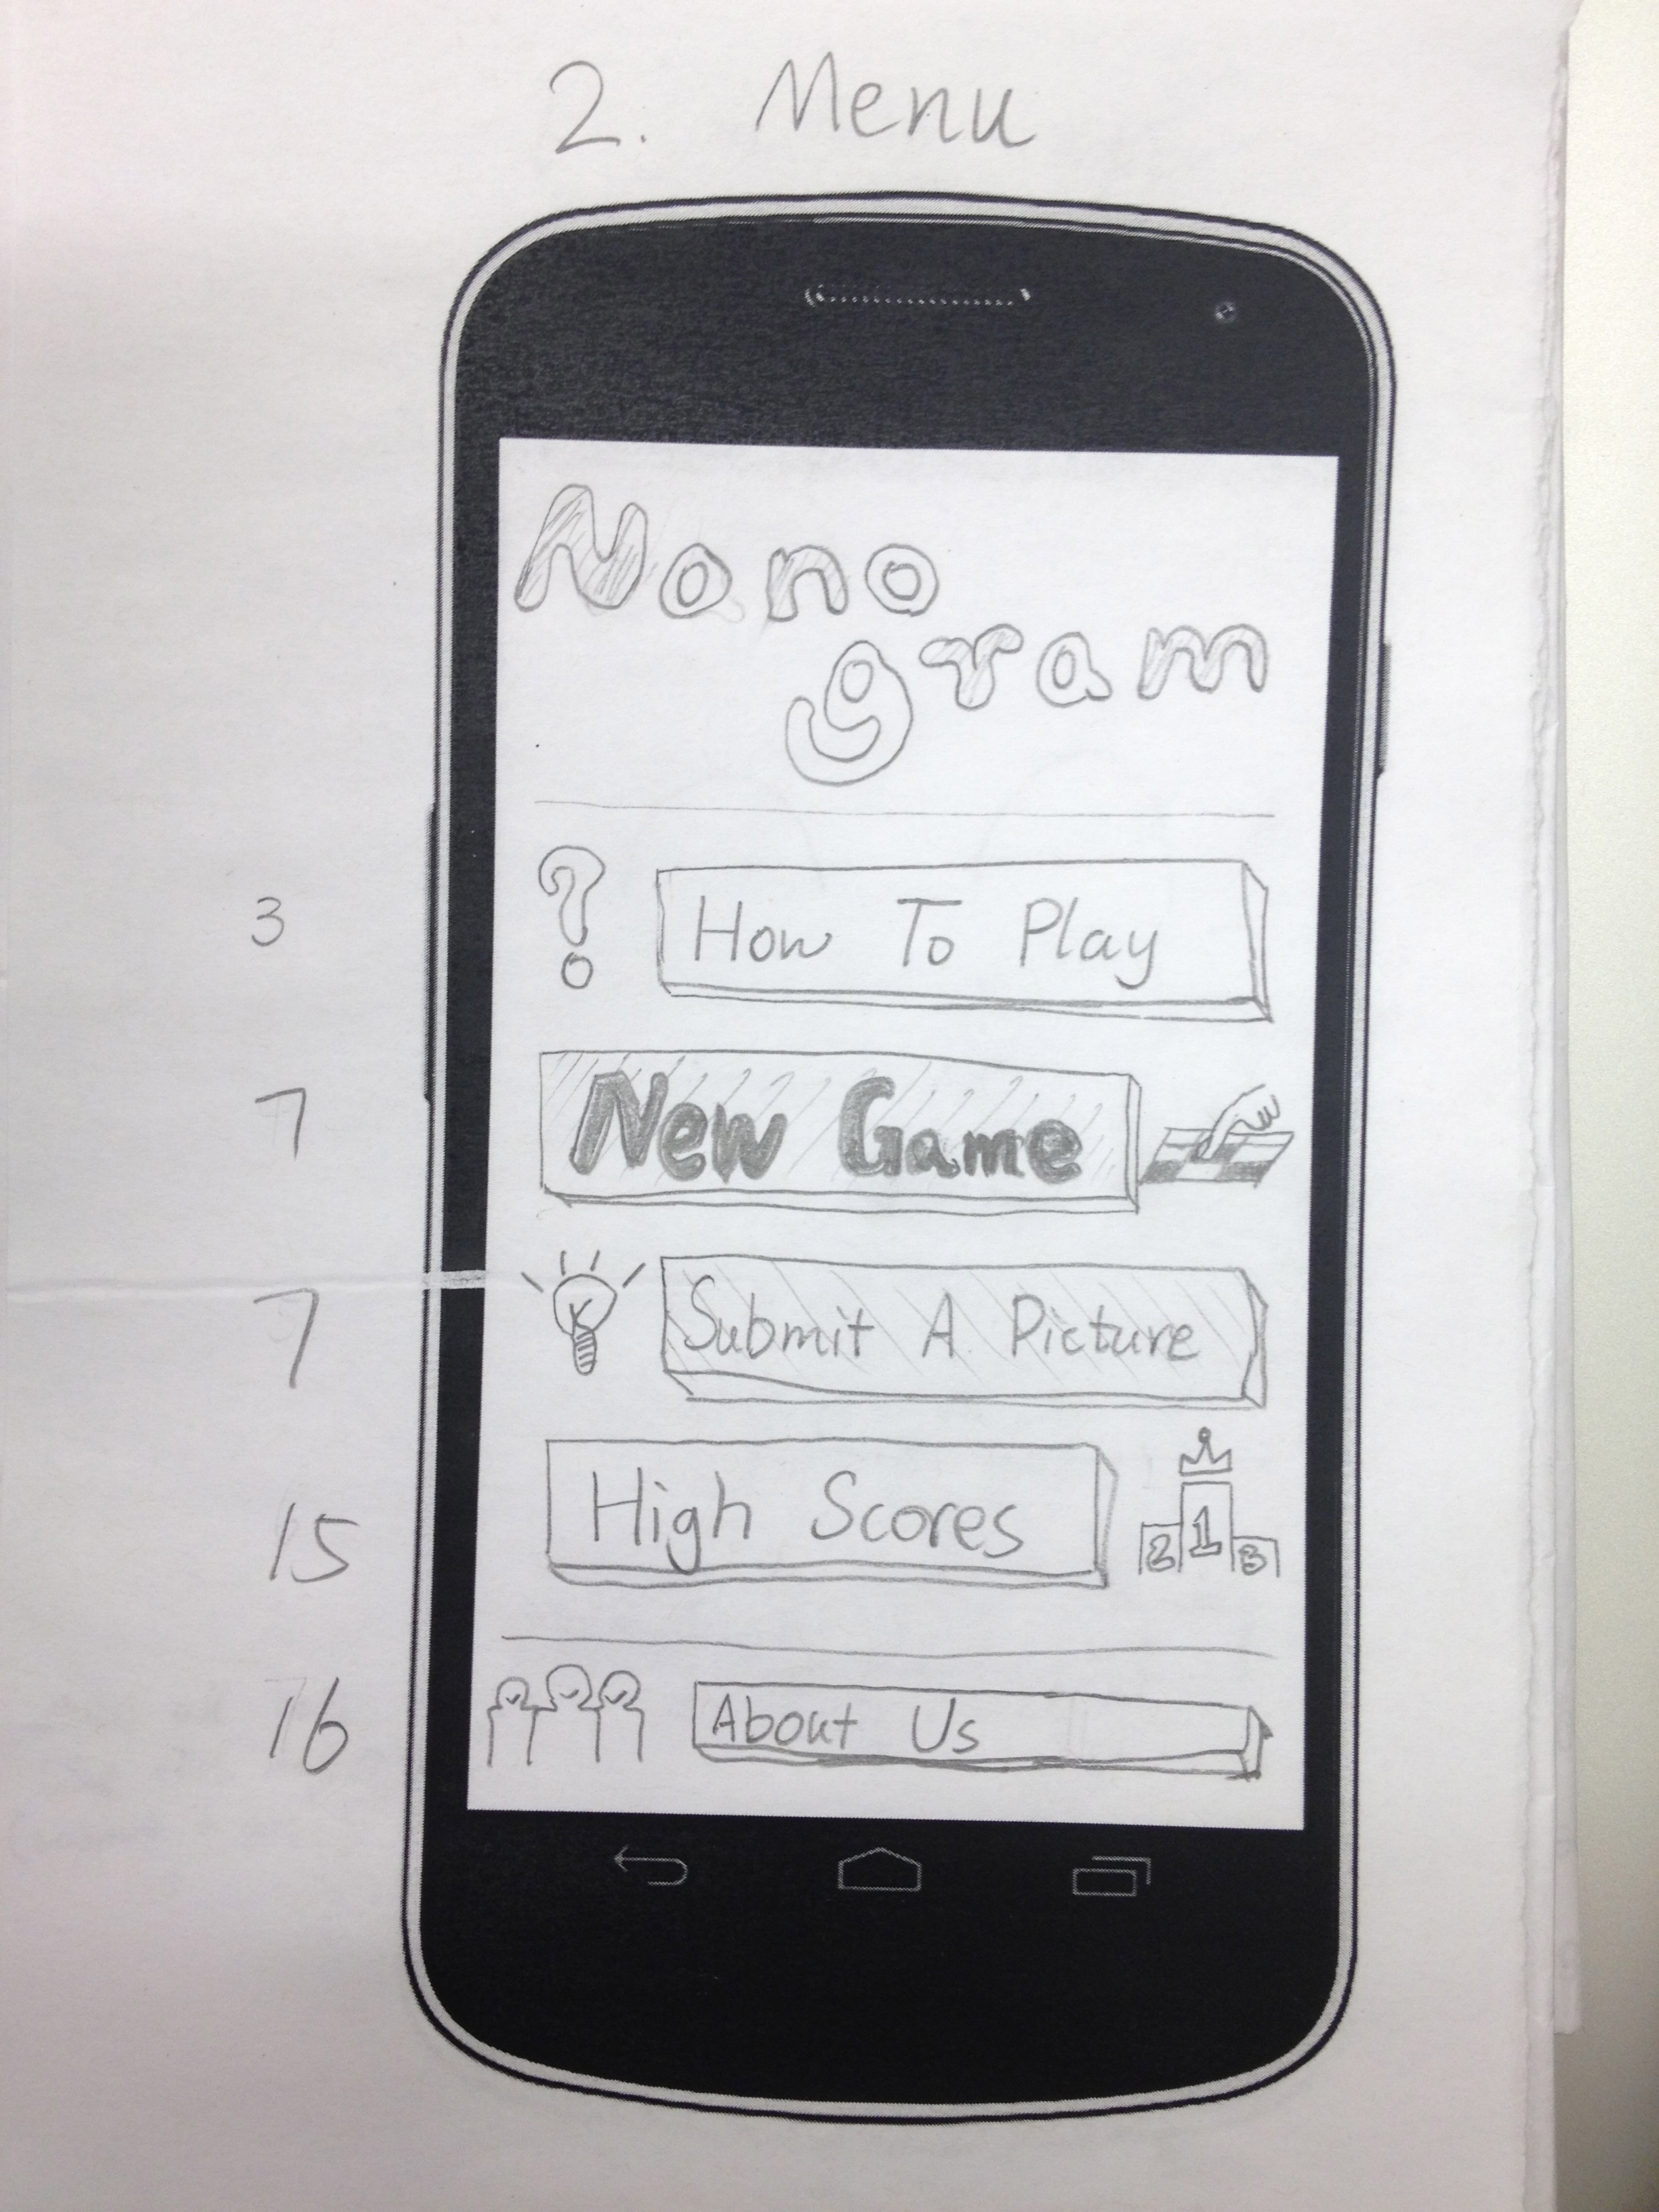 2. Menu
Nono
gram
3
?
How To Play
7
New Game
7
Submit A Picture
15
High Scores
2 1 3
16
About Us